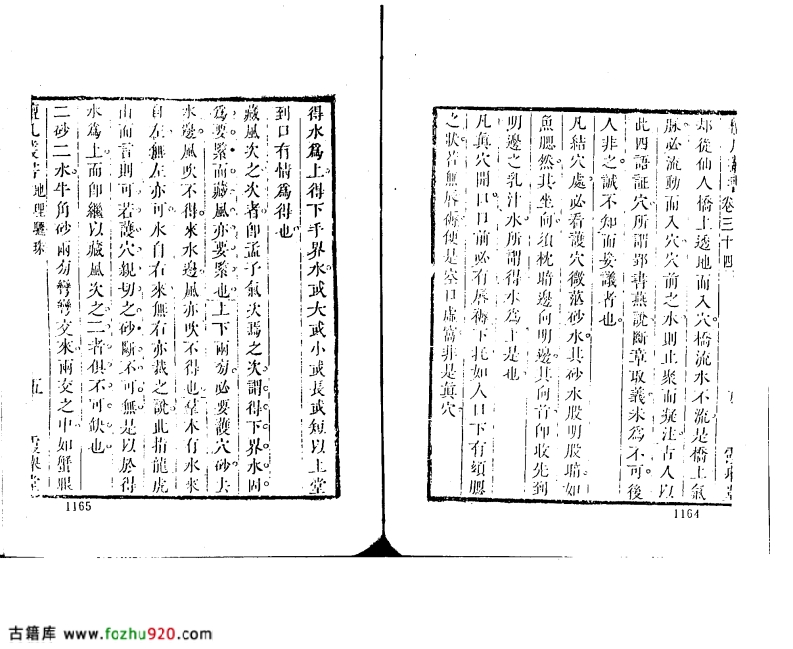 卷三十四
却從仙人橋上透地而入穴橋流水不流是橋上氣
脉必流動而入穴穴前之水則止聚而凝注古人以
此四語証穴所謂郢書燕說斷章取義未為不可後
人非之誠不知而妄議者也
凡結穴處必看護穴微茫砂水其砂水股明股暗如
魚腮然其坐向須枕暗邊向明邊其向首卽收先到
明邊之乳汁水所謂得水為上是也
凡眞穴開口口前必有唇褥下托如人口下有頦腮
之狀若無唇褥便是空口虛窩非是眞穴
1164
得水為上得下手界水或大或小或長或短以上堂
到口有情為得也
藏風次之次者卽孟子氣次焉之次謂得下界水固
為要緊而藏風亦要緊也上下兩旁必要護穴砂去
水邊風吹不得來水邊風亦吹不得也葬木有水來
自左無左亦可水自右來無右亦裁之說此指龍虎
山而言則可若護穴親切之砂斷不可無是以於得
水為上而卽繼以藏風次之二者俱不可缺也
二砂二水牛角砂兩旁彎彎交來兩交之中如蟹眼
叢書 地理驪珠
五
堂
1165
古籍库 www.fozhu920.com